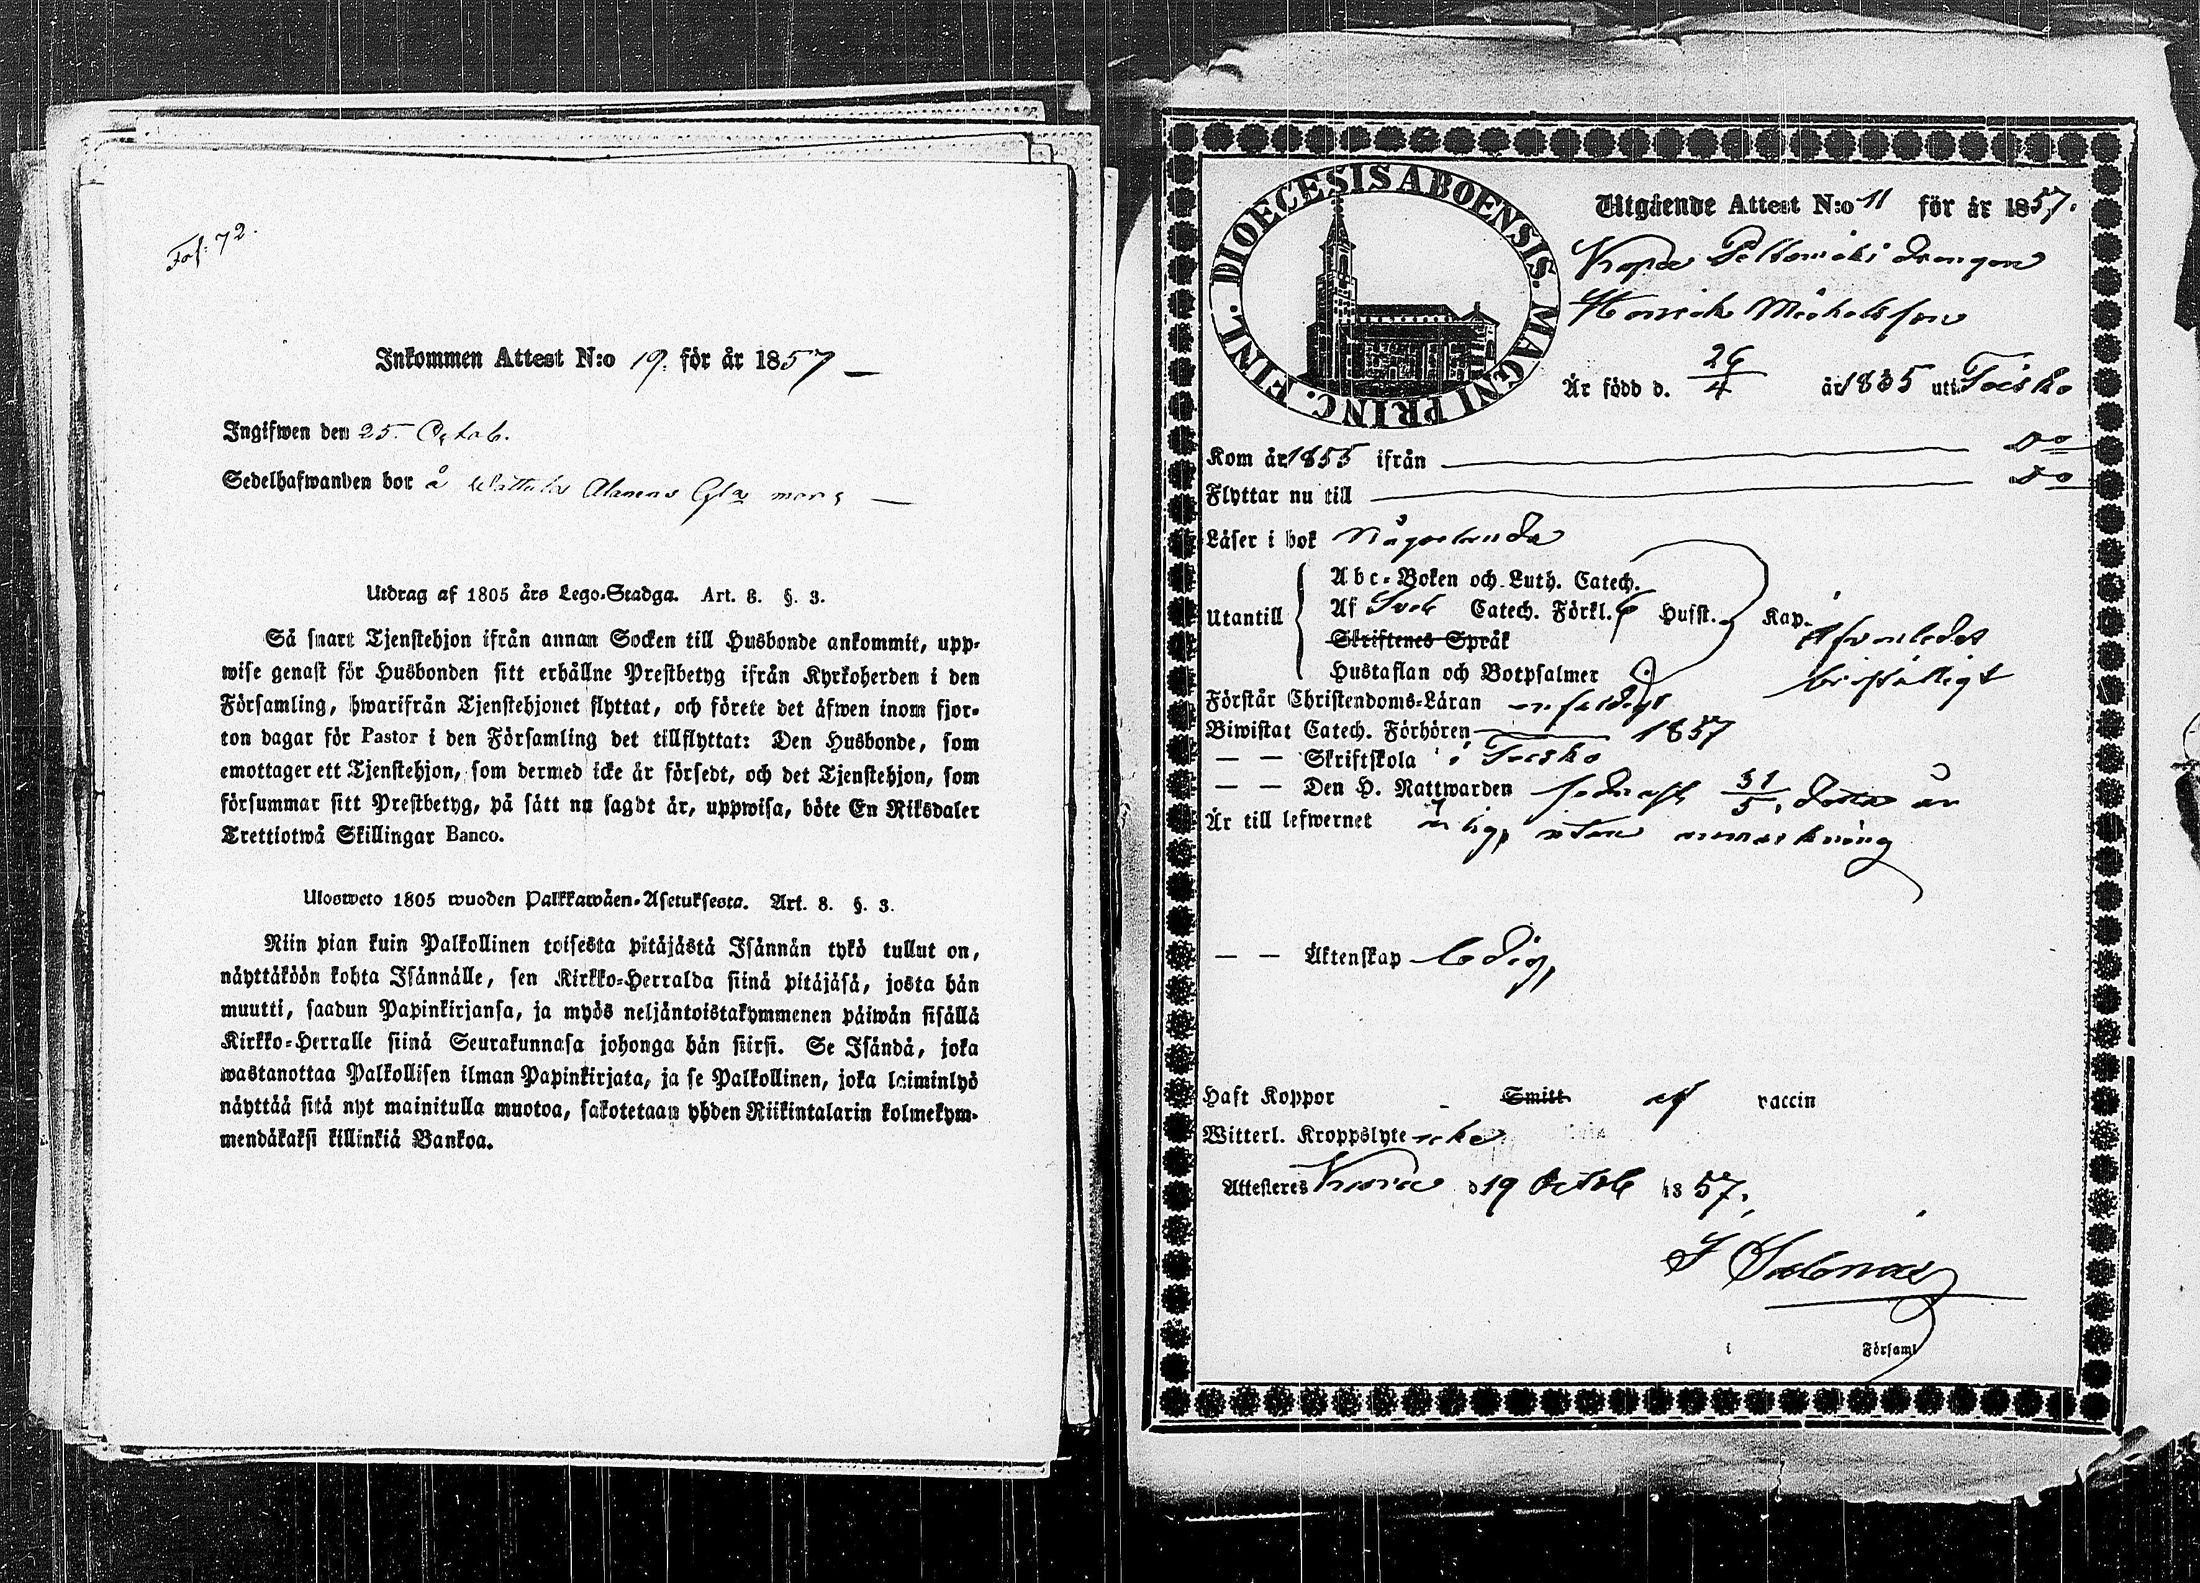 Fol: 72.
Inkommen Attest N:o 19. för år 1857
Ingifwen den 25. Octob.
Sedelhafwanden bor å
Utdrag af 1805 års Lego-Stadga. Art. 8. §. 3.
Så snart Tjenstehjon ifrån annan Socken till Husbonde ankommit, upp-
wise genast för Husbonden sitt erhållne Prestbetyg ifrån Kyrkoherden i den
Församling, hwarifrån Tjenstehjonet flyttat, och förete det äfwen inom fjor-
ton dagar för Pastor i den Församling det tillflyttat: Den Husbonde, som
emottager ett Tjenstehjon, som dermed icke är försedt, och det Tjenstehjon, som
försummar sitt Prestbetyg, på sätt nu sagdt är, uppwisa, böte En Riksdaler
Trettiotwå Skillingar Banco.
Ulosweto 1805 wuoden Palkkawäen-Asetuksesta. Art. 8. §. 3.
Niin pian kuin Palkollinen toisesta pitäjästä Isännän tykö tullut on,
näyttäköön kohta Isännälle, sen Kirkko-Herralda siinä pitäjäsä, josta hän
muutti, saadun Papinkirjansa, ja myös neljäntoistakymmenen päiwän sisällä
Kirkko-Herralle siinä Seurakunnasa johonga hän siirsi. Se Isändä, joka
wastanottaa Palkollisen ilman Papinkirjata, ja se Palkollinen, joka laiminlyö
näyttää sitä nyt mainitulla muotoa, sakotetaan yhden Riikintalarin kolmekym-
mendäkaksi killinkiä Bankoa.
DIOECESIS ABOENSIS. MAGNI PRINC. FINL.
Utgående Attest N:o 11 för år 1857.
Henrik Michelsson
Är född d. 26/4 år 1835 uti Toisko
Kom år 1855 ifrån Do
Flyttar nu till Do
Läser i bok någorlunda
Utantill
Abc-Boken och Luth. Catech.
Af Sveb Catech. Förkl. 6 Husst. Kap.
Skriftenes Språk
Hustaflan och Botpsalmer
Förstår Christendoms-Läran enfaldigt
Biwistat Catech. Förhören 1857
— — Skriftskola i Toisko
— — Den H. Nattwarden sednast 31/5 detta år
Är till lefwernet ärlig, utan anmärkning
— — Äktenskap ledig,
Haft Koppor - Smitt af vaccin
Witterl. Kroppslyte icke
Attesteres d 19 Octob 1857.
i Församl